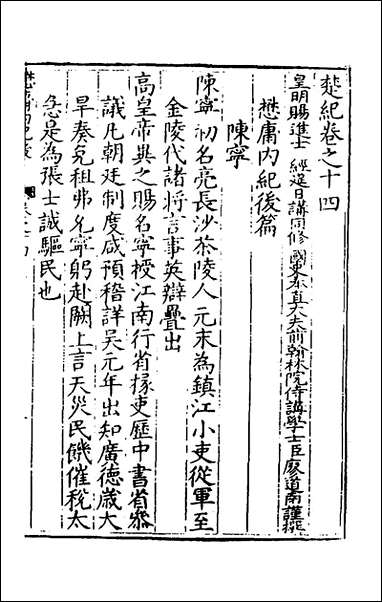 楚紀卷之十四
皇明賜進士 經筵日講同修 國史奉直大夫前翰林院侍講學士臣廖道南謹撰
懋庸內紀後篇
陳寧
陳寧初名亮長沙茶陵人元末為鎮江小吏從軍至
金陵代諸將言事英辯疊出
高皇帝異之賜名寧授江南行省掾吏歷中書省叅
議凡朝廷制度咸預稽詳吳元年出知廣德歲大
旱奏免租弗允寧躬赴闕上言天災民饑催稅太
急是為張士誠驅民也